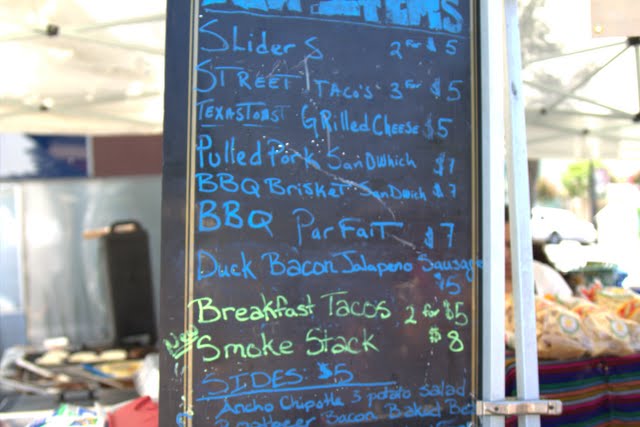 ITEMS
Sliders 2 for $5
STREET TACO'S 3 for $5
TEXAS TOAST GRilled CHEESE $5
Pulled Pork SanDWhich $7
BBQ Brisket SanDWich $7
BBQ ParFaiT $7
Duck Bacon Jalapeno Sausage
$5
Breakfast Tacos 2 for $5
New Smoke Stack $8
SIDES $5
Ancho Chipotle 3 potato salad
Bacon Baked Be